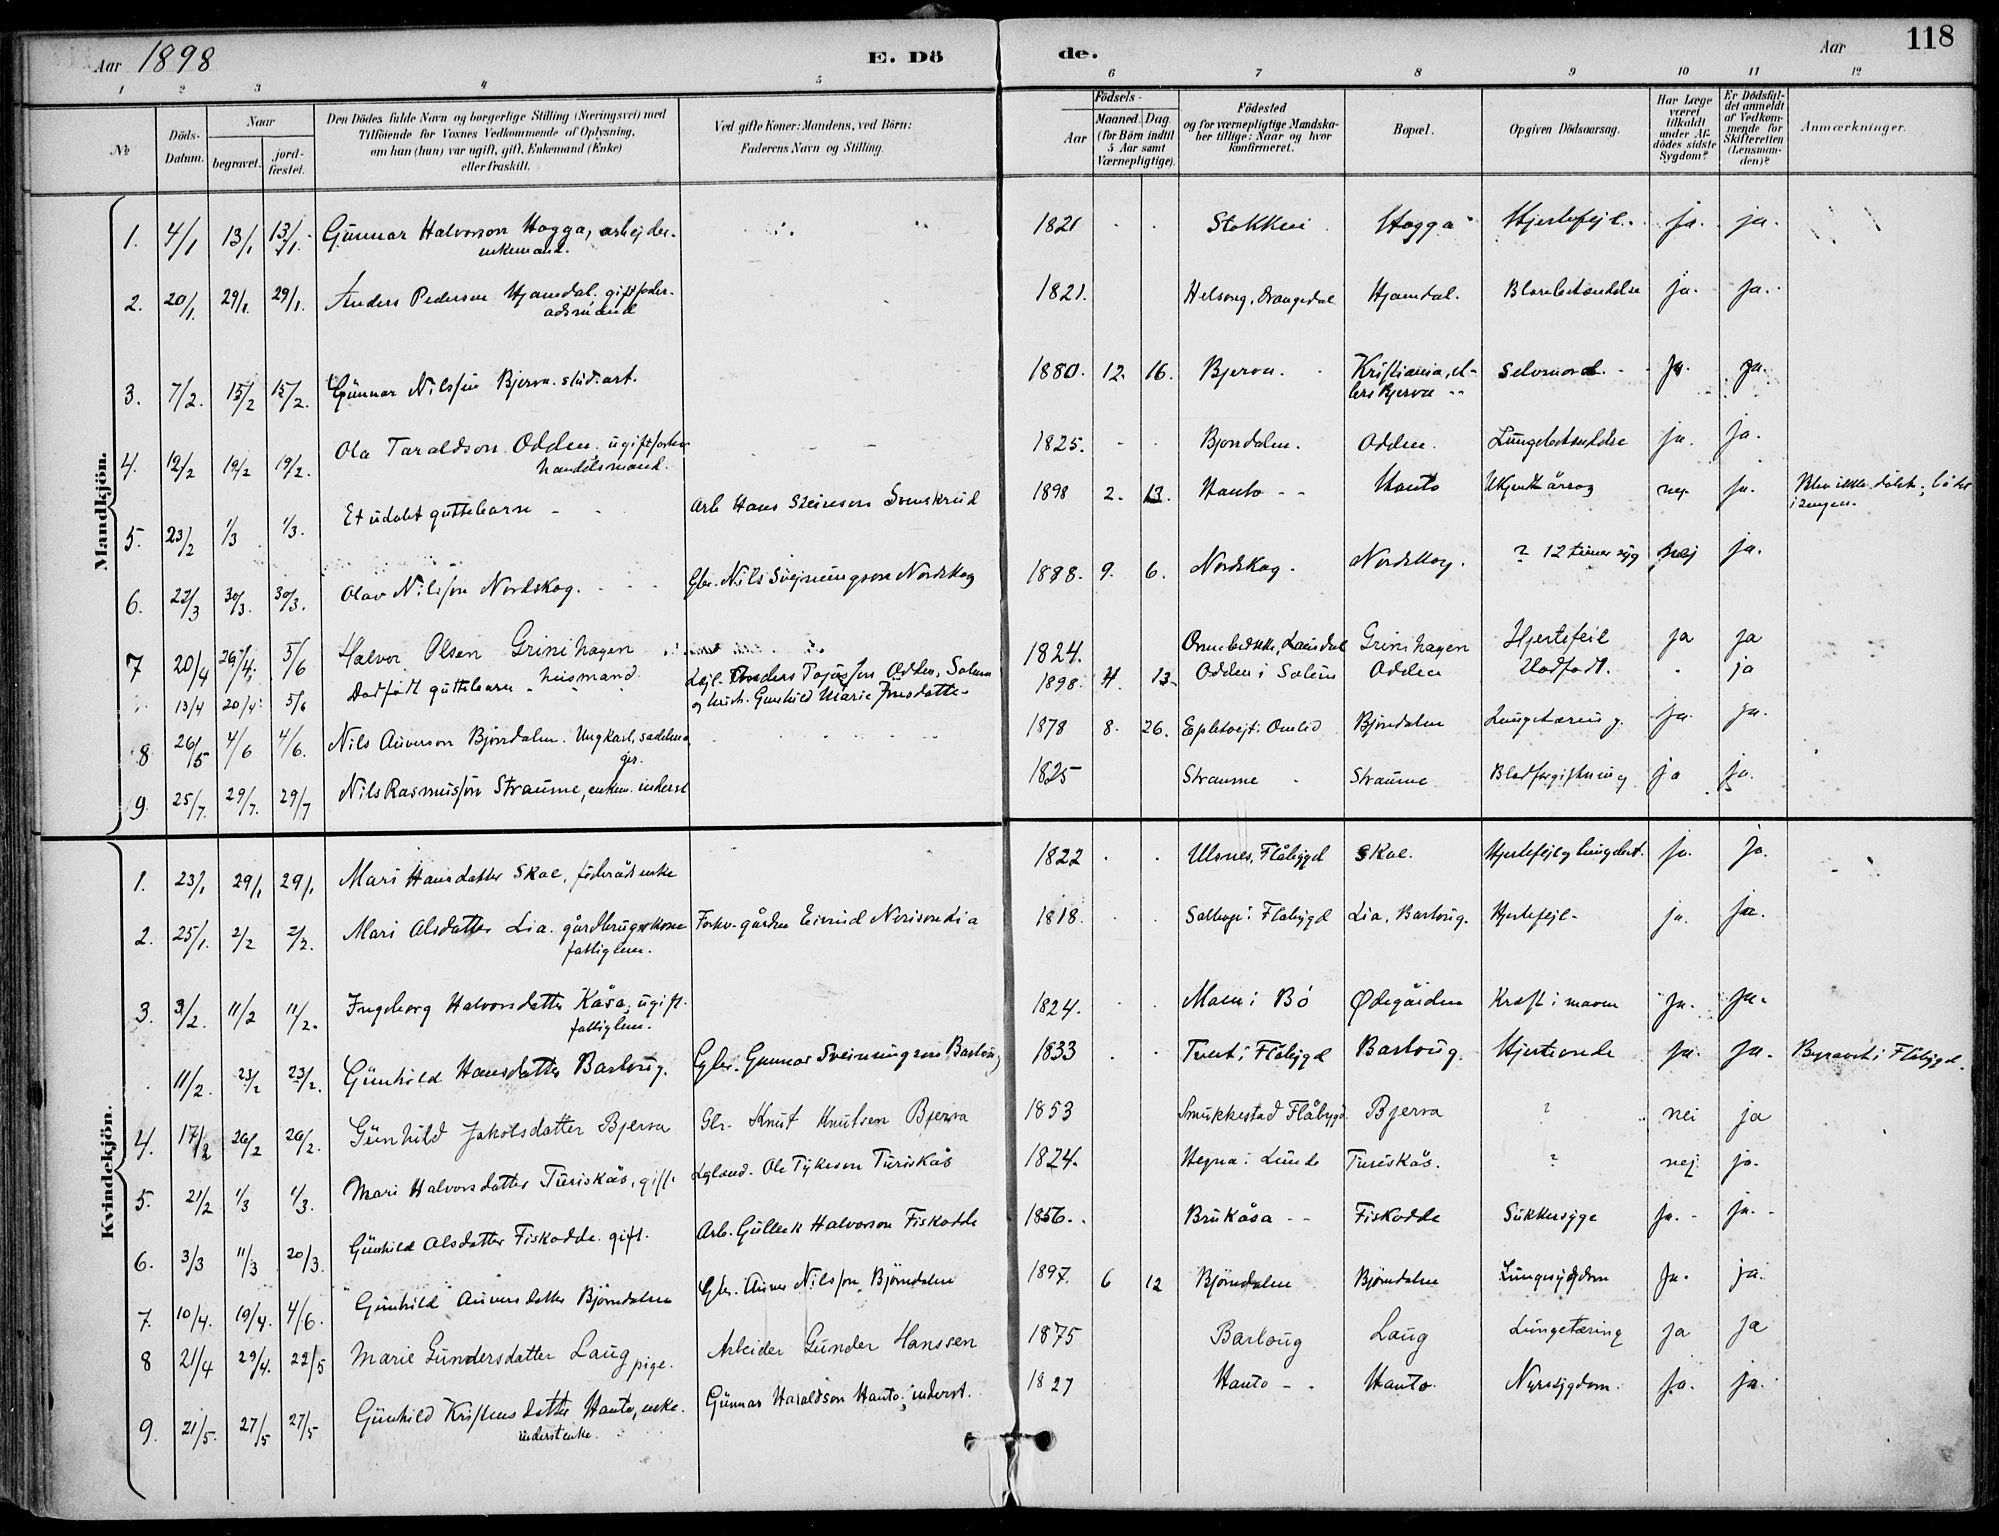 Aar 1898 E. Dö de. Aar 118
1 2 3 4 5 6 7 8 9 10 11 12
№
Döds-Datum.
Naar
begravet. jord-fæstet.
Den Dödes fulde Navn og borgerlige Stilling (Næringsvei) med
Tilföiende for Voxnes Vedkommende af Oplysning,
om han (hun) var ugift, gift, Enkemand (Enke)
eller fraskilt.
Ved gifte Koner: Mandens, ved Börn:
Faderens Navn og Stilling.
Födsels-
Aar Maaned. Dag.
(for Börn indtil 5 Aar samt Værnepligtige).
Födested
og for værnepligtige Mandska-
ber tillige: Naar og hvor
konfirmeret.
Bopæl.
Opgiven Dödsaarsag.
Har Læge været tilkaldt under Afdödes sidste Sygdom?
Er Dödsfaldet anmeldt af Vedkommende for Skifteretten (Lensmanden)?
Anmærkninger.
Mandkjön.
1. 4/1 13/1 13/1. Gunnar Halvorson Hogga, arbejder. enkemand. 1821 Stokkei Hogga Hjertefejl. ja. ja.
2. 20/1. 29/1. 29/1. Anders Pedersen Hjamdal. gift foder-adsmand 1821. Helseng, Drangedal Hjamdal. Blærebetændelse ja. ja.
3. 7/2. 15/2 15/2. Gunnar Nilssen Bjerva. stud. art. 1880. 12. 16. Bjerva. Kristiania, el-lers Bjerva Selvmord. ja. ja.
4. 12/2 19/2 19/2. Ola Taraldson Odden. ugift handelsmand. 1825. Bjorndalen. Odden. Lungebetændelse ja. ja.
5. 23/2 1/3 1/3. Et udøbt guttebarn Arb Hans Sveinson Svenskrud 1898 2. 13. Hanto Hanto Ukjendt årsag nej. ja. Blev ikke døbt;
6. 22/3 30/3. 30/3. Olav Nilsson Nordskog. Gbr. Nils Svejnungson Nordskog 1888. 9. 6. Nordskog. Nordskog. ? 12 timer syg nej ja.
7 20/4 5/6 Halvor Olsen Grinihagen husmand. 1824. Grinihagen Hjertefeil ja ja
13/4 20/4 5/6 Dødfødt guttebarn 1898. 4. 13. Odden i Solum Odden Dødfødt. ja
og hustr. Gunhild Marie
8 26/5 4/6 4/6. Nils Auverson Bjørndalen. Ungkarl, sadelma-ger. 1878 8. 26. Omlid Bjørndalen Lungetæring. ja. ja.
9. 25/7. 29/7. 29/7 Nils Rasmusson Straume, enkem. inderst 1825 Straume Straume Blodforgiftning ja ja.
Kvindekjön.
1. 23/1 29/1 29/1. Mari Hansdatter Skoe, föderåds enke 1822 Ulsnes, Flåbygd Skoe. Hjertefejl og ja. ja.
2. 25/1. 2/2 2/2. Mari Olsdatter Lia. gårdbrugerkone fattiglem. Forhv. gårdbr Eivind Nerison Lia 1818. Flåbygd Lia, Barloug. Hjertefejl ja. ja.
3. 3/2. 11/2 11/2. Ingeborg Halvorsdatter Kåsa, ugift. fattiglem. 1824. Moen i Bö Ødegården Kræft i maven ja. ja.
11/2. 23/2 23/2. Gunhild Hansdatter Barloug. Gbr. Gunnar Sveinungson Barloug 1833 Tveit i Flåbygd Barloug. Hjerteonde ja. ja. Begravet i Flåbygd.
4. 17/2 26/2 26/2. Gunhild Jakobsdatter Bjerva Gbr. Knut Knutsen Bjerva 1853 Smukkestad Flåbygd. Bjerva ? nei ja
5. 21/2 1/3 1/3. Mari Halvorsdatter Turiskås, gift. Ole Tykeson Turiskås 1824. Hegna i Lunde Turiskås. ? nej. ja.
6. 3/3 11/3 20/3. Gunhild Olsdatter Fiskodde. gift. Arb. Gulleik Halvorson Fiskodde 1856. Brukåsa Fiskodde Sukkersyge ja. ja.
7. 10/4. 19/4. 4/6. Gunhild Auversdatter Bjørndalen Gbr. Auver Nilsson Bjørndalen 1897. 6 12 Bjørndalen Bjørndalen Lungesygdom ja. ja.
8 21/4 29/4. 22/5 Marie Gundersdatter Laug pige. Arbeider Gunder Hanssen 1875 Barloug Laug Lungetæring ja ja
9. 21/5. 27/5 27/5 Gunhild Kristensdatter Hanto, enke. inderstenke. Gunnar Haraldson Hanto, inderst. 1827 Hanto Hanto. Nyresygdom. ja. ja.